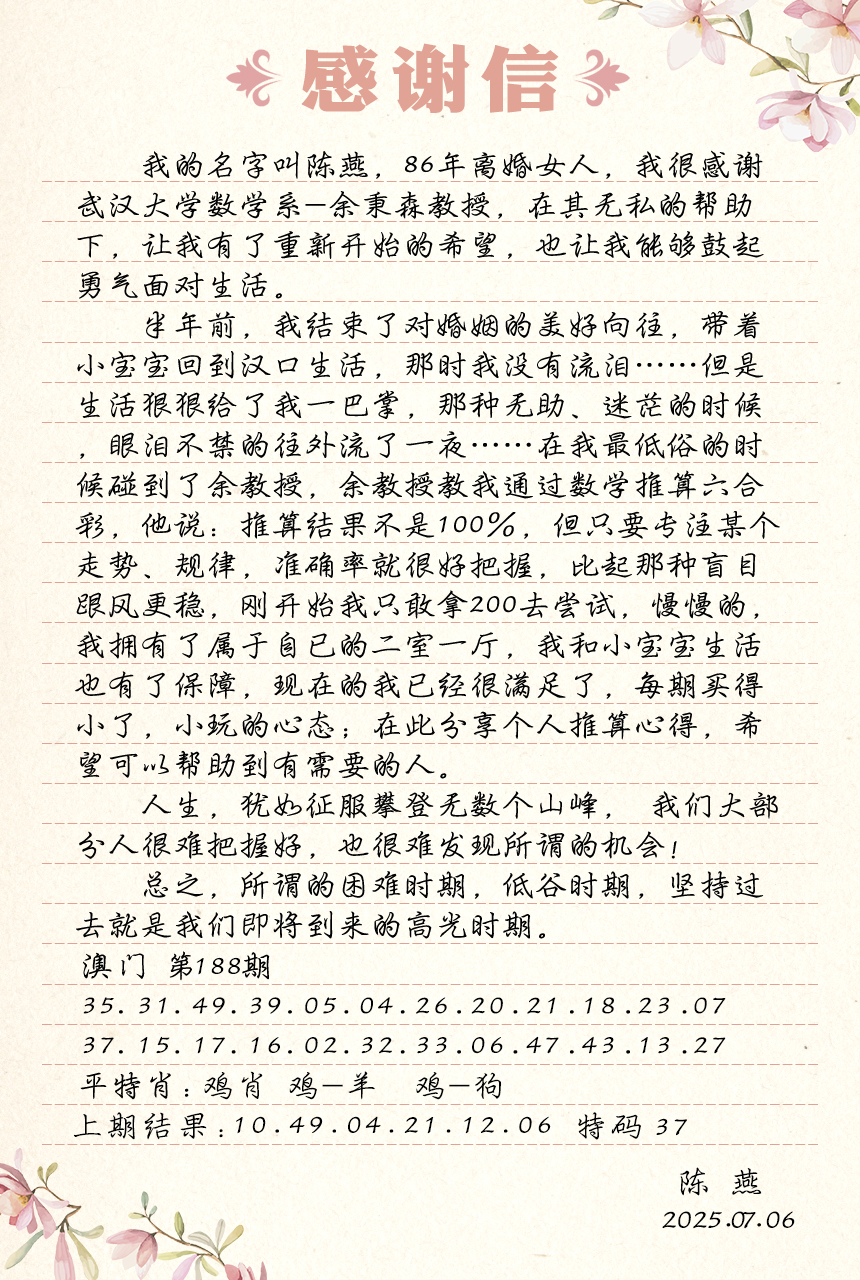 感谢信
我的名字叫陈燕，86年离婚女人，我很感谢
武汉大学数学系—余秉森教授，在其无私的帮助
下，让我有了重新开始的希望，也让我能够鼓起
勇气面对生活。
半年前，我结束了对婚姻的美好向往，带着
小宝宝回到汉口生活，那时我没有流泪……但是
生活狠狠给了我一巴掌，那种无助、迷茫的时候
，眼泪不禁的往外流了一夜……在我最低俗的时
候碰到了余教授，余教授教我通过数学推算六合
彩，他说：推算结果不是100%，但只要专注某个
走势、规律，准确率就很好把握，比起那种盲目
跟风更稳，刚开始我只敢拿200去尝试，慢慢的，
我拥有了属于自已的二室一厅，我和小宝宝生活
也有了保障，现在的我已经很满足了，每期买得
小了，小玩的心态；在此分享个人推算心得，希
望可以帮助到有需要的人。
人生，犹如征服攀登无数个山峰， 我们大部
分人很难把握好，也很难发现所谓的机会！
总之，所谓的困难时期，低谷时期，坚持过
去就是我们即将到来的高光时期。
澳门 第188期
35.31.49.39.05.04.26.20.21.18.23.07
37.15.17.16.02.32.33.06.47.43.13.27
平特肖：鸡肖 鸡—羊 鸡—狗
上期结果：10.49.04.21.12.06 特码 37
陈 燕
2025.07.06